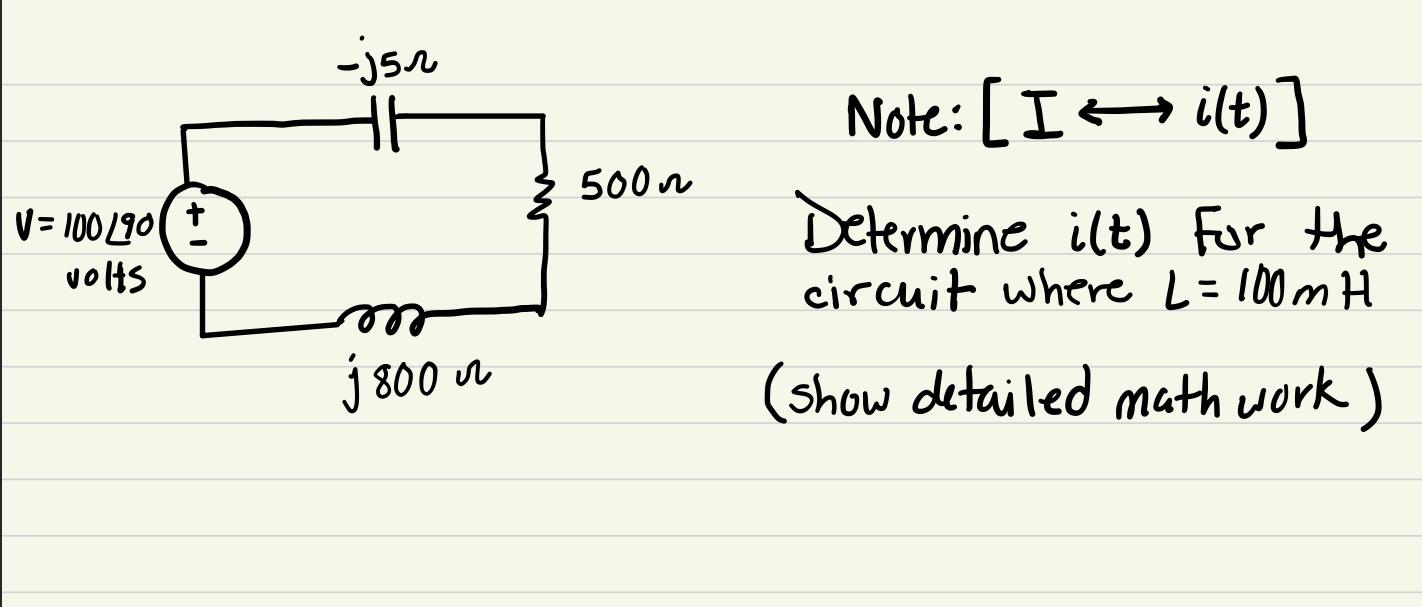 -j5Ω
500Ω
+
-
V=100∠90
volts
j800 Ω
Note: [ I ⟷ i(t) ]
Determine i(t) for the
circuit where L = 100mH
(show detailed math work)